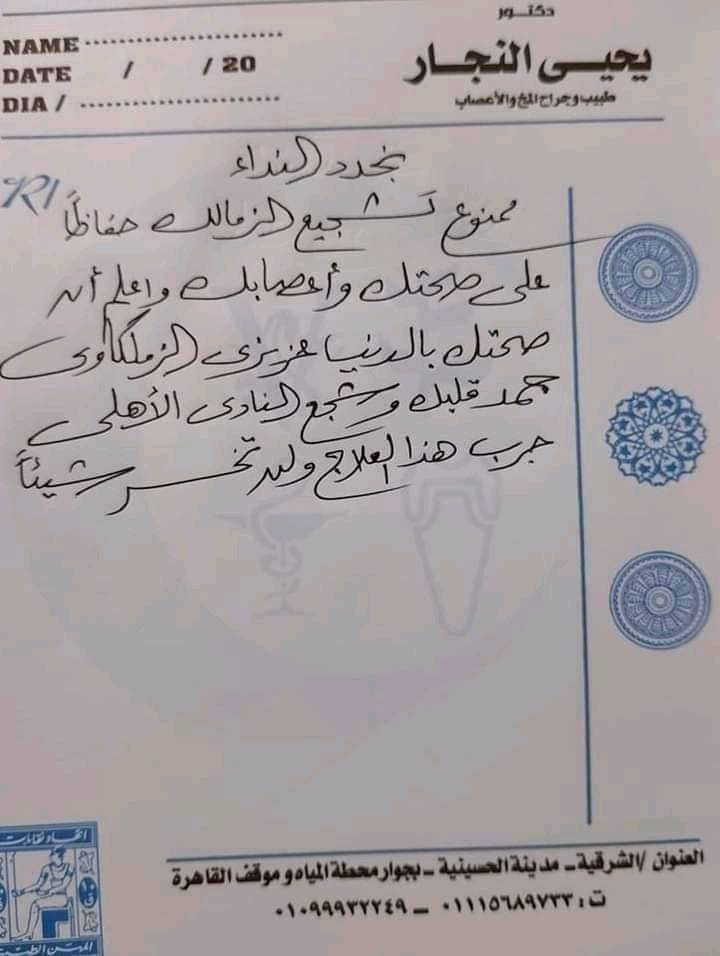 دكتور
يحيى النجار
طبيب وجراح المخ والأعصاب
NAME
DATE / / 20
DIA /
R/
نجدد النداء
ممنوع تشجيع الزمالك حفاظاً
على صحتك وأعصابك واعلم أن
صحتك بالدنيا عزيزى الزملكاوى
جمد قلبك وشجع النادى الأهلى
جرب هذا العلاج ولن تخسر شيئاً
العنوان /الشرقية - مدينة الحسينية - بجوار محطة المياه و موقف القاهرة
ت: ٠١١١٥٦٨٩٧٣٣ - ٠١٠٩٩٩٣٢٢٤٩
اتحاد نقابات
المهن الطبية